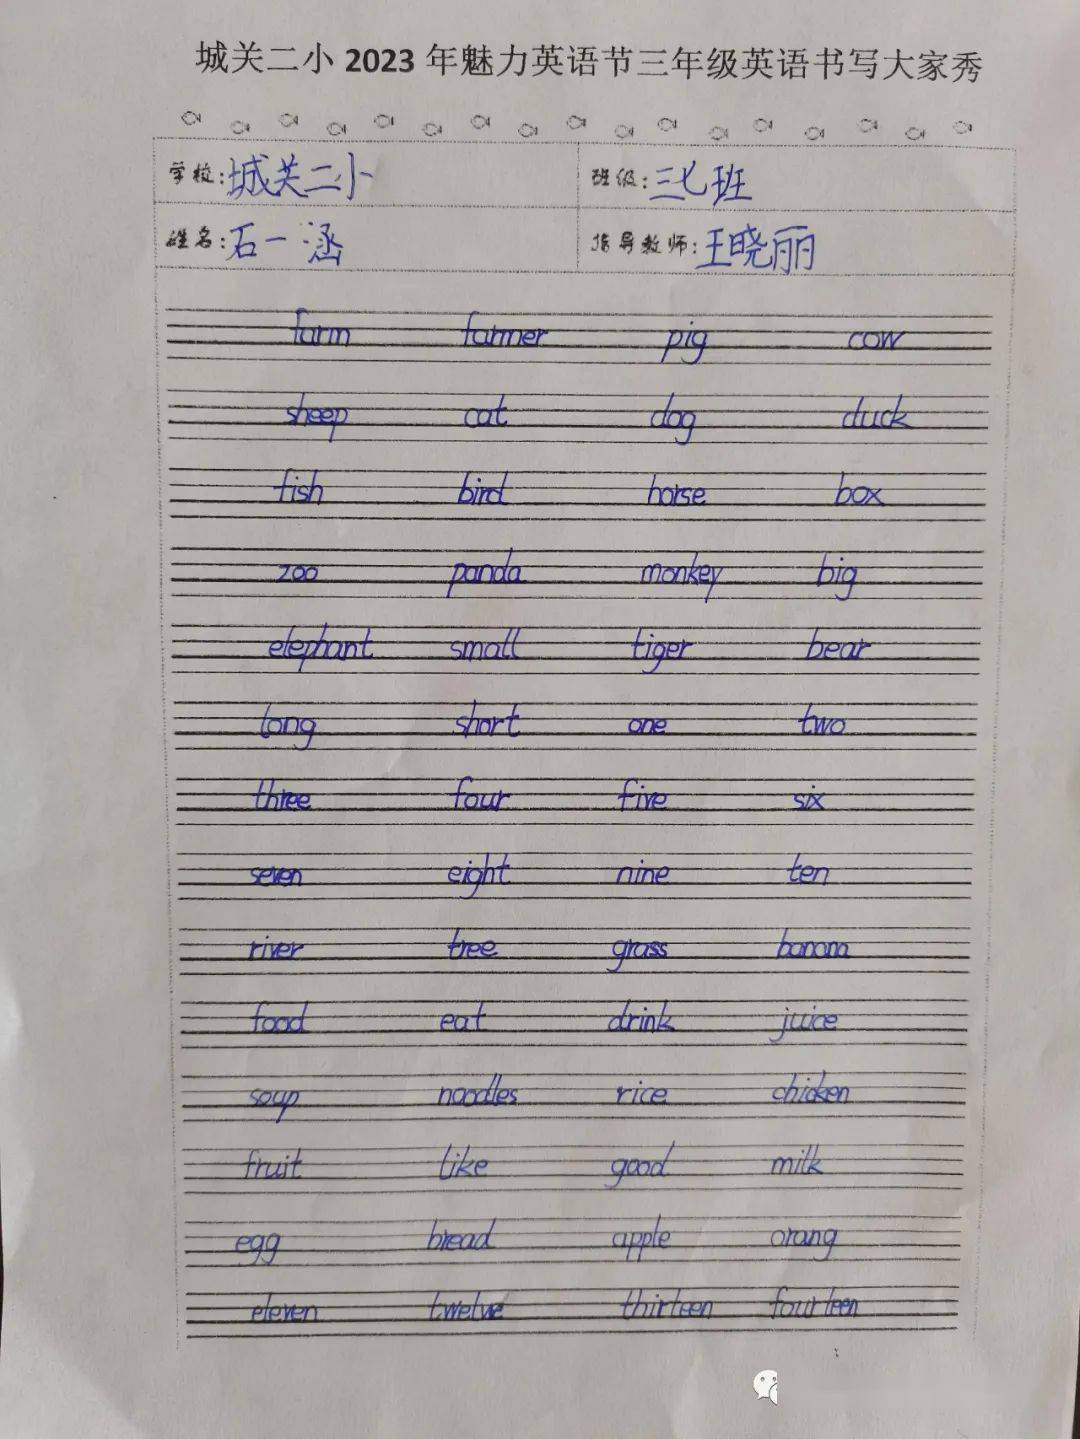 城关二小 2023 年魅力英语节三年级英语书写大家秀
学校:城关二小 班级:三七班
姓名:石一涵 指导教师:王晓丽
farm farmer pig cow
sheep cat dog duck
fish bird horse box
zoo panda monkey big
elephant small tiger bear
long short one two
three four five six
seven eight nine ten
river tree grass banana
food eat drink juice
soup noodles rice chicken
fruit like good milk
egg bread apple orang
eleven twelve thirteen fourteen